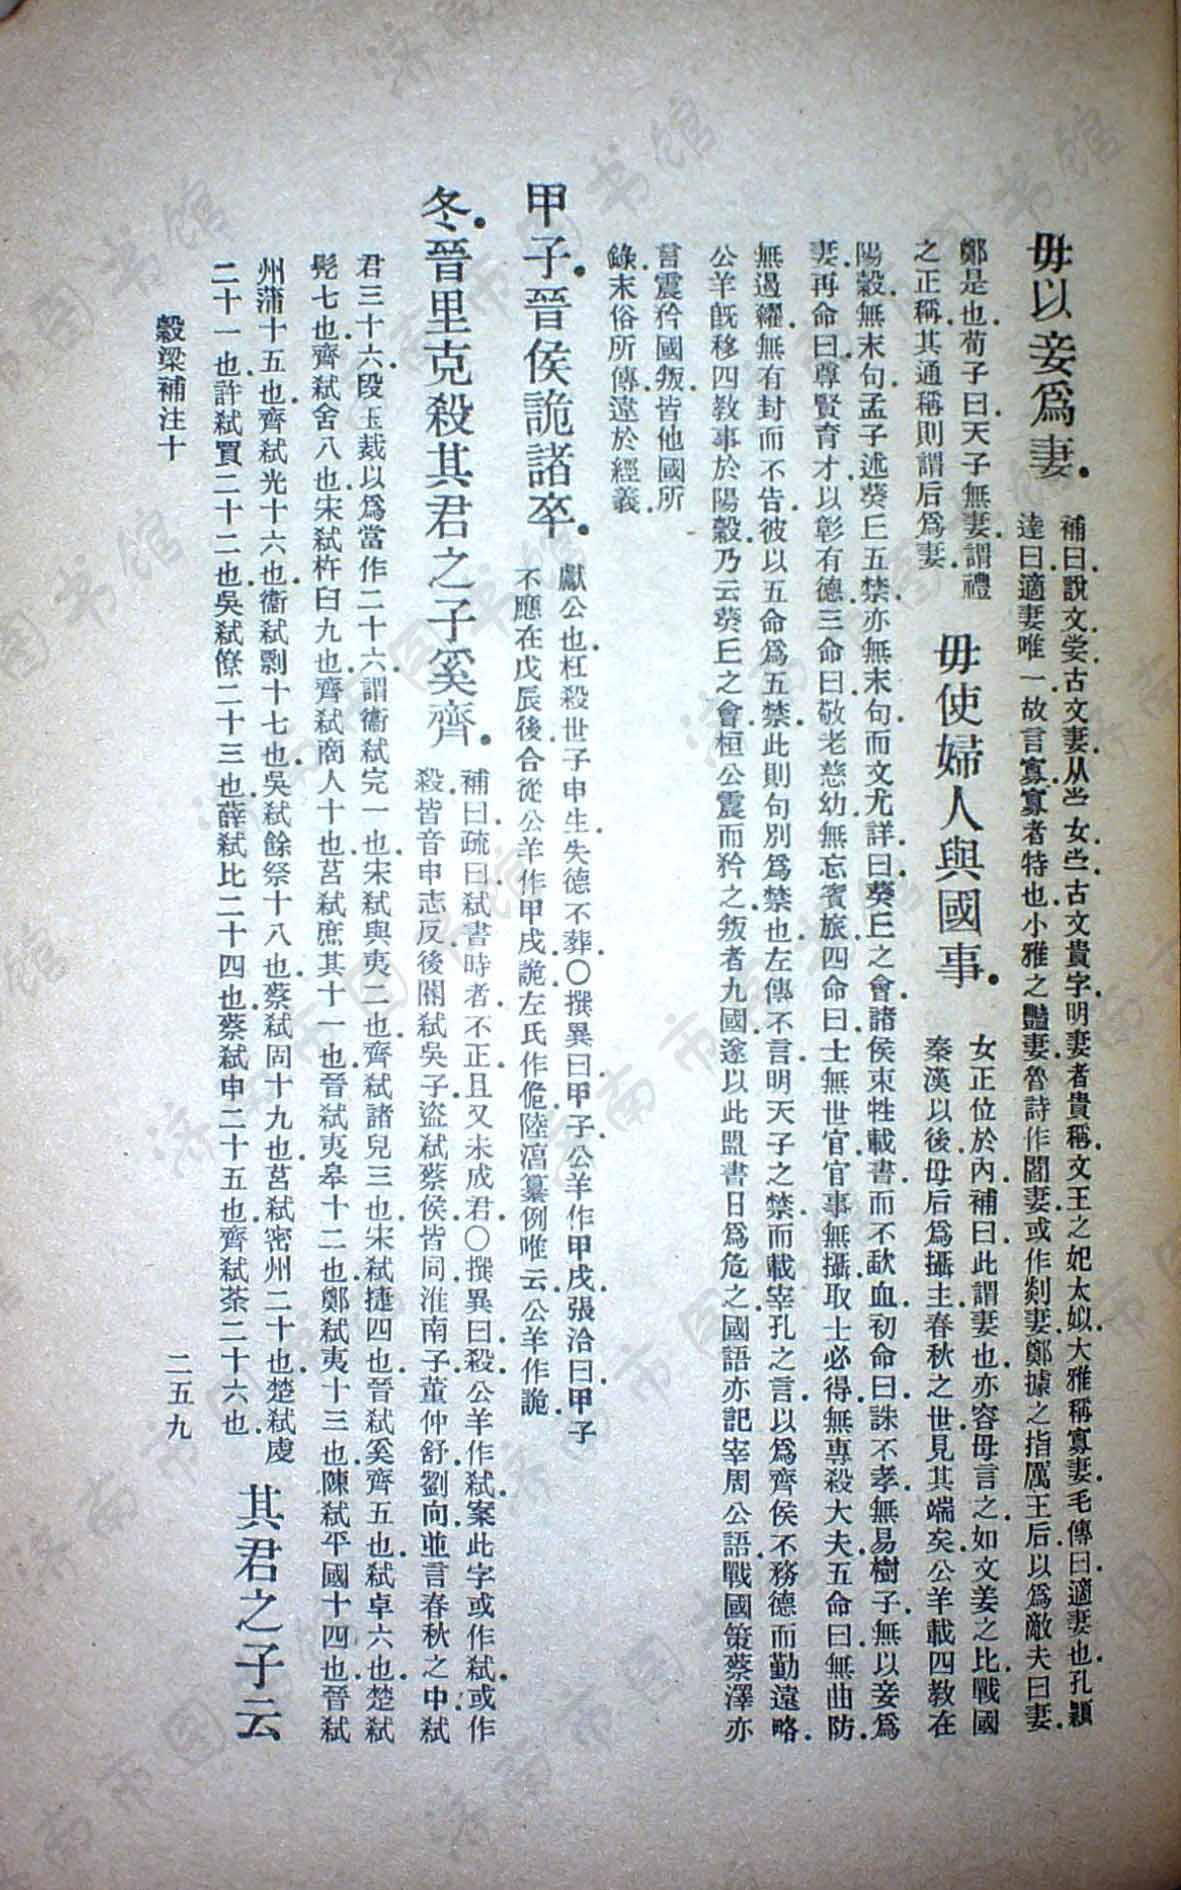 毋以妾爲妻。
補曰。說文。㛑古文妻。从𡴋女。𡴋古文貴字。明妻者貴稱。文王之妃太姒。大雅稱寡妻。毛傳曰。適妻也。孔穎
達曰。適妻唯一。故言寡。寡者特也。小雅之豔妻。魯詩作閻妻。或作剡妻。鄭據之指厲王后。以爲敵夫曰妻。
鄭是也。荀子曰。天子無妻。謂禮
之正稱。其通稱則謂后爲妻。
毋使婦人與國事。
女正位於內。補曰。此謂妻也。亦容母言之。如文姜之比。戰國
秦漢以後。母后爲攝主。春秋之世見其端矣。公羊載四教在
陽穀。無末句。孟子述葵丘五禁。亦無末句。而文尤詳。曰。葵丘之會。諸侯束牲載書而不歃血。初命曰。誅不孝。無易樹子。無以妾爲
妻。再命曰。尊賢育才。以彰有德。三命曰。敬老慈幼。無忘賓旅。四命曰。士無世官。官事無攝。取士必得。無專殺大夫。五命曰。無曲防。
無遏糴。無有封而不告。彼以五命爲五禁。此則句別爲禁也。左傳不言明天子之禁。而載宰孔之言。以爲齊侯不務德而勤遠略。
公羊旣移四教事於陽穀。乃云葵丘之會。桓公震而矜之。叛者九國。遂以此盟書日爲危之。國語亦記宰周公語。戰國策蔡澤亦
言震矜國叛。皆他國所
錄。末俗所傳。違於經義。
甲子。晉侯詭諸卒。
獻公也。枉殺世子申生。失德不葬。○撰異曰。甲子。公羊作甲戌。張洽曰。甲子
不應在戊辰後。合從公羊作甲戌。詭。左氏作佹。陸湻纂例唯云。公羊作詭。
冬。晉里克殺其君之子奚齊。
補曰。疏曰。弑書時者。不正且又未成君。○撰異曰。殺。公羊作弑。案此字或作弑。或作
殺。皆音申志反。後閽弑吳子。盜弑蔡侯皆同。淮南子。董仲舒。劉向並言春秋之中。弑
君三十六。段玉裁以爲當作二十六。謂衞弑完一也。宋弑與夷二也。齊弑諸兒三也。宋弑捷四也。晉弑奚齊五也。弑卓六也。楚弑
髡七也。齊弑舍八也。宋弑杵臼九也。齊弑商人十也。莒弑庶其十一也。晉弑夷皋十二也。鄭弑夷十三也。陳弑平國十四也。晉弑
州蒲十五也。齊弑光十六也。衞弑剽十七也。吳弑餘祭十八也。蔡弑固十九也。莒弑密州二十也。楚弑虔
二十一也。許弑買二十二也。吳弑僚二十三也。薛弑比二十四也。蔡弑申二十五也。齊弑荼二十六也。
其君之子云
穀梁補注十
二五九